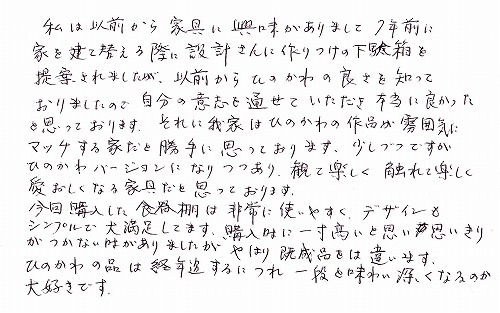 私は以前から家具に興味がありまして 7年前に
家を建て替える際に設計さんに作りつけの下駄箱を
提案されましたが、以前からひのかわの良さを知って
おりましたので自分の意志を通せていただき本当に良かった
と思っております。それに我家はひのかわの作品が雰囲気に
マッチする家だと勝手に思っております。少しづつですが
ひのかわバージョンになりつつあり、観て楽しく 触れて楽しく
愛おしくなる家具だと思っております。
今回購入した食器棚は非常に使いやすく、デザインも
シンプルで大満足してます。購入時に一寸高いと思い思いきり
がつかない時がありましたが やはり既成品とは違います。
ひのかわの品は経年追するにつれ一段と味わい深くなるのが
大好きです。